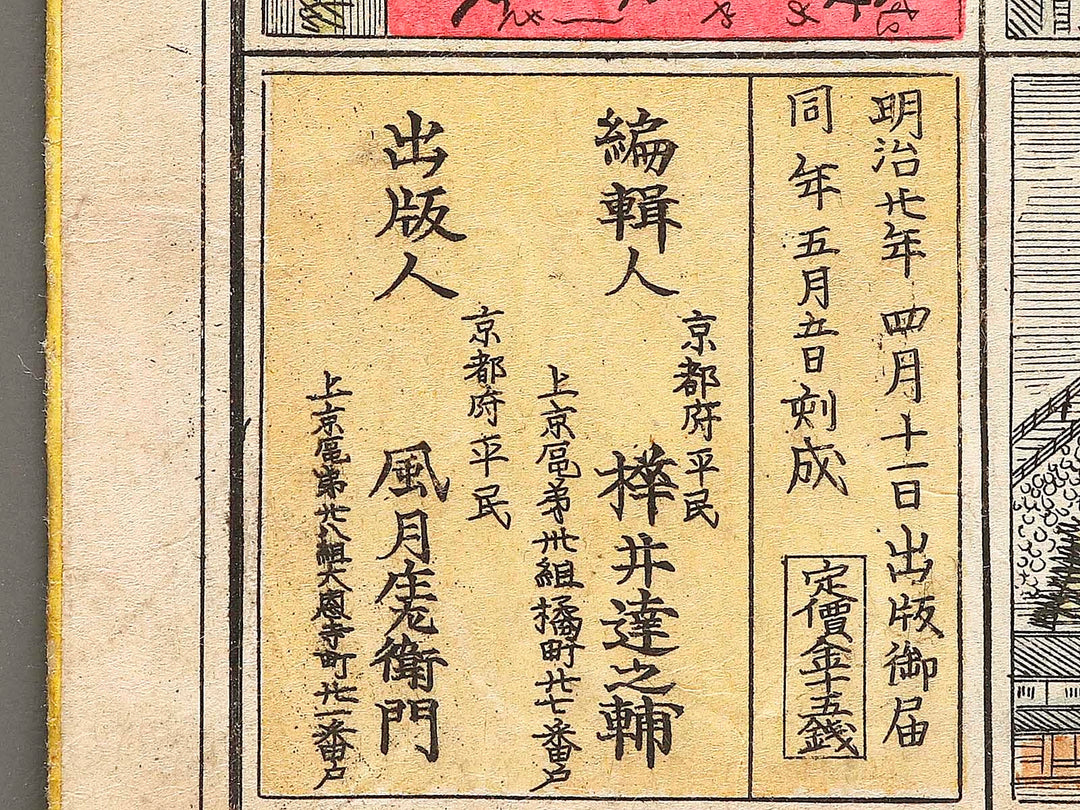 明治廿年四月十一日出版御届
同年五月五日刻成
定價金十五錢
編輯人
京都府平民
樺井達之輔
上京區第卅組橘町廿七番戸
出版人
京都府平民
風月庄左衛門
上京區第廿八組大恩寺町廿一番戸